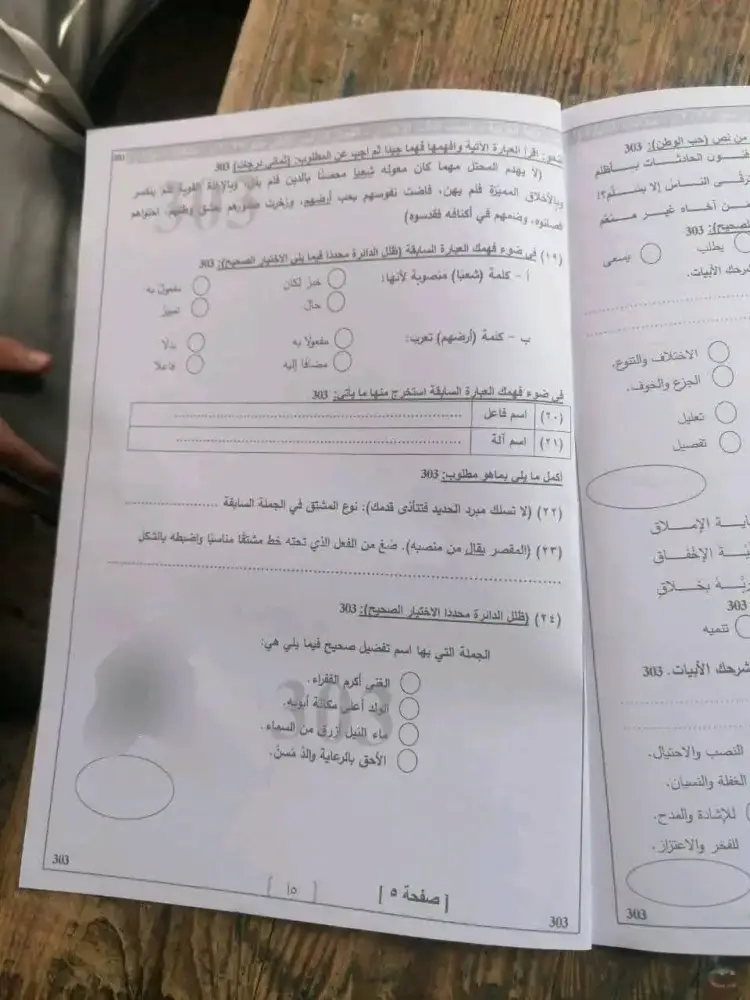 نحو: اقرأ العبارة الآتية وافهمها فهما جيدا ثم أجب عن المطلوب: (ثماني درجات) 303
(لا يهدم المحتل مهما كان معوله شعبا محصنًا بالدين فلم يلن، وبالإرادة القوية فلم ينكسر
وبالأخلاق المميزة فلم يهن، فاضت نفوسهم بحب أرضهم، وزخرت صدورهم بعشق وطنهم، احتواهم
فصانوه، وضمهم في أكنافه فقدسوه)
(١٩) في ضوء فهمك العبارة السابقة (ظلل الدائرة محددا فيما يلي الاختيار الصحيح): 303
أ - كلمة (شعبًا) منصوبة لأنها:
خبر لكان
مفعول به
حال
تمييز
ب - كلمة (أرضهم) تعرب:
مفعولا به
بدلًا
مضافا إليه
فاعلا
في ضوء فهمك العبارة السابقة استخرج منها ما يأتي: 303
(٢٠) اسم فاعل
(٢١) اسم آلة
أكمل ما يلي بماهو مطلوب: 303
(٢٢) (لا تسلك مبرد الحديد فتتأذى قدمك): نوع المشتق في الجملة السابقة
(٢٣) (المقصر يقال من منصبه). صُغ من الفعل الذي تحته خط مشتقًا مناسبًا واضبطه بالشكل
(٢٤) (ظلل الدائرة محددا الاختيار الصحيح): 303
الجملة التي بها اسم تفضيل صحيح فيما يلي هي:
الغني أكرم الفقراء.
الولد أعلى مكانة أبويه.
ماء النيل أزرق من السماء.
الأحق بالرعاية والدٌ مُسنٌ.
303
303
[ صفحة ٥ ]
[ ١٥ ]
303
من نص (حب الوطن): 303
الصحيح): 303
يطلب
يسعى
شرحك الأبيات.
الاختلاف والتنوع.
الجزع والخوف.
تعليل
تفصيل
303
تنميه
شرحك الأبيات. 303
النصب والاحتيال.
الغفلة والنسيان.
للإشادة والمدح.
للفخر والاعتزاز.
303